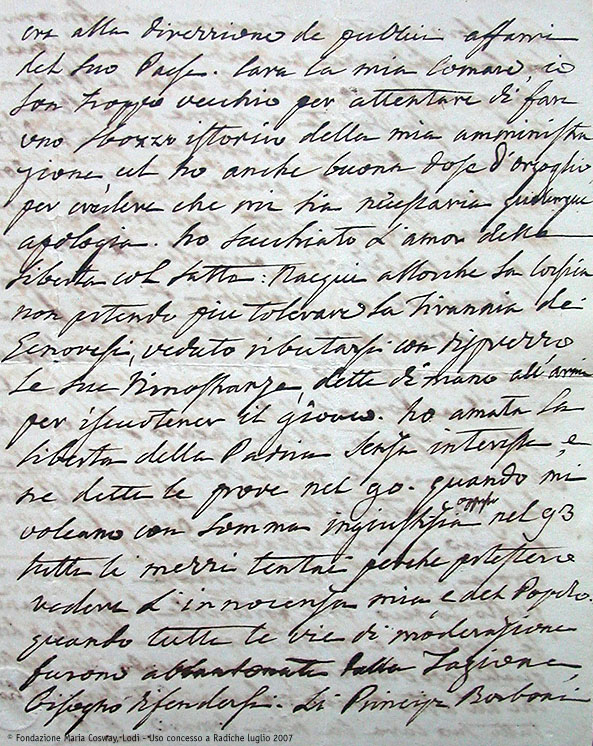 era alla direzzione de publici affarri
del suo Paese. Cara la mia Comare, io
son troppo vecchio per attentare di fare
uno sbozzo istorico della mia amminist̶ra
zione ed ho anche buona dose d'orgoglio
per credere che mi sia necessaria qualunque
apologia. ho succhiato l'amor della
libertà col latte. Nacqui allorche la Corsica
non potendo piu tolerare la Tirannia dei
Genovesi, veduto ributarsi con disprezzo
le sue rimostranze, dette di mano all'armi
per iscuoterne il giovo. ho amata la
libertà della Patria senza interesse, e
ne detti le prove nel 90. quando mi
voleano con somma ingiustizia nel 93
tutti li mezzi tentai perche potessero
vedere l'innocenza mia, e del Popolo.
quando tutte le vie di moderazione
furono abbandonate dalla fazione,
bisognò difendersi. Li Principi Borboni
© Fondazione Maria Cosway, Lodi - Uso concesso a Radiche luglio 2007